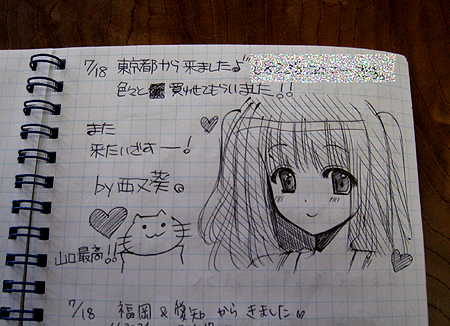 7/18 東京都から来ました♪
色々と買わせてもらいました!!
また
来たいぞすー!
by
山口最高!!
7/18 福岡&愛知からきました